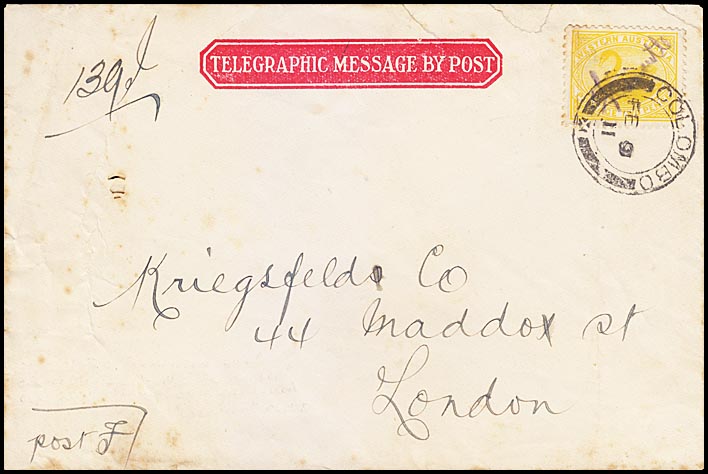 TELEGRAPHIC MESSAGE BY POST
WESTERN AUSTRALIA
COLOMBO
FE 9
11
Kriegsfelds Co
44 Maddox st
London
post F